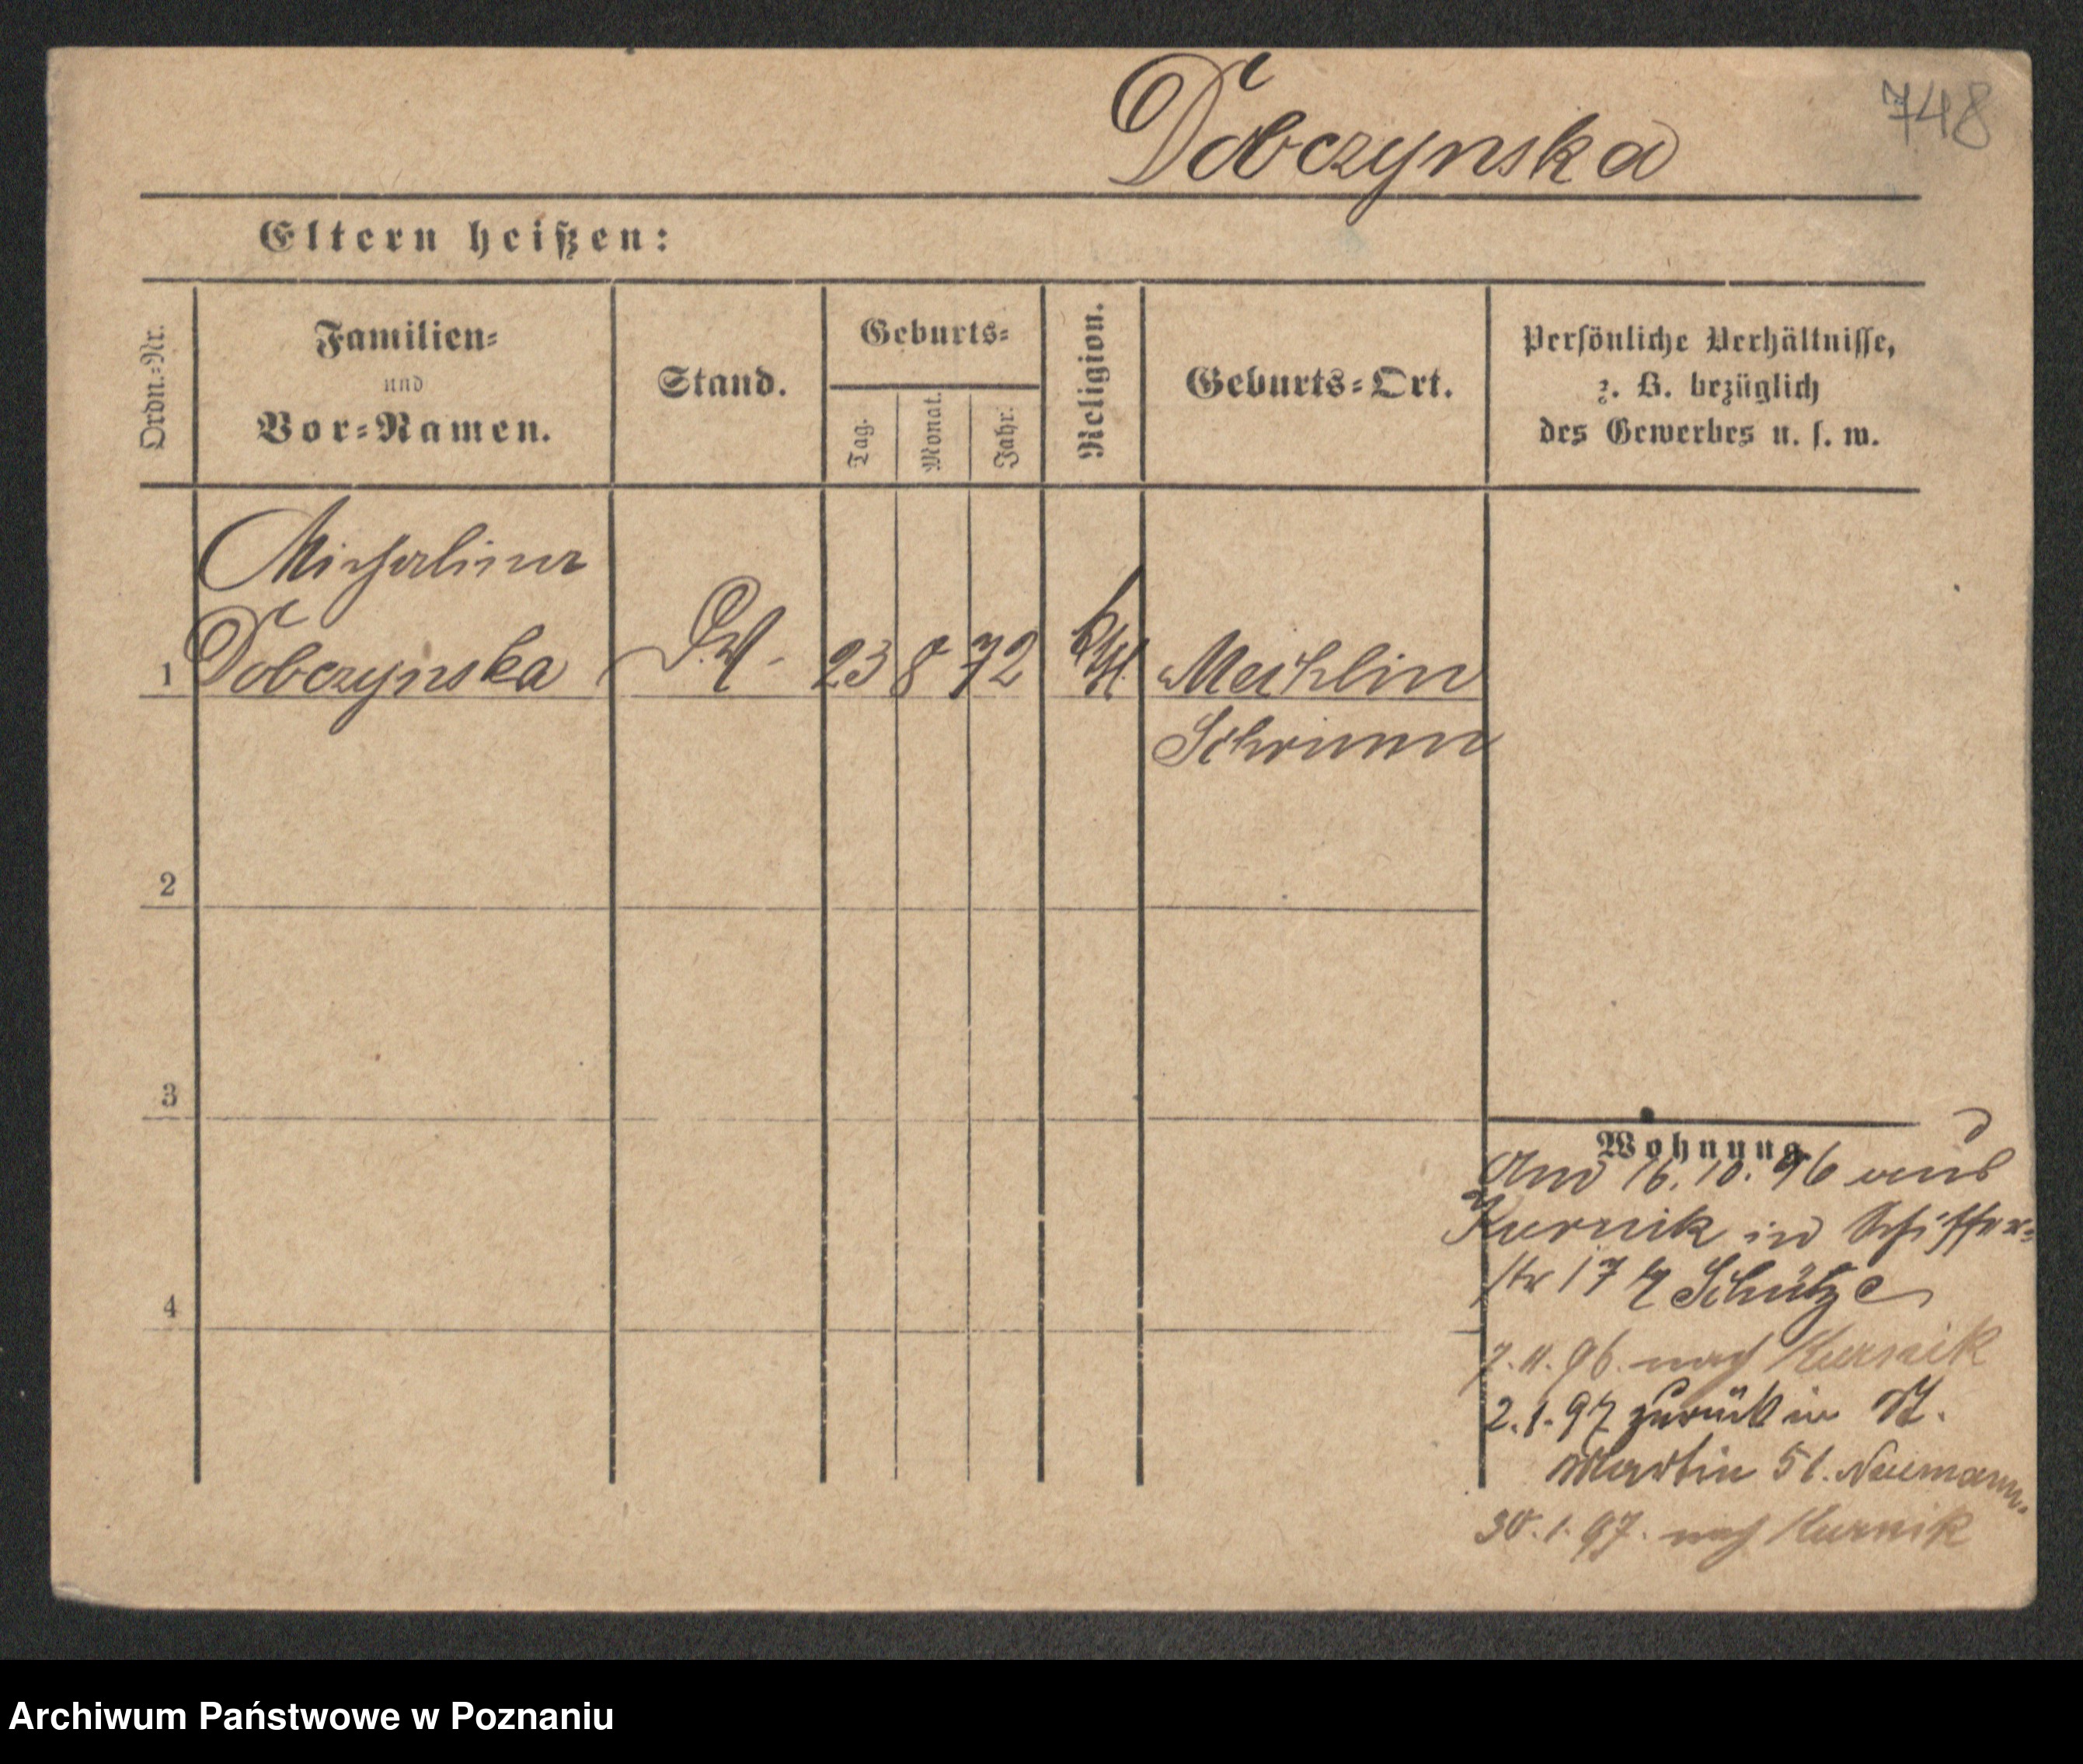 Dobczynska
748
Eltern heißen:
Ordn.-Nr.
Familien-
und
Vor-Namen.
Stand.
Geburts-
Tag.
Monat.
Jahr.
Religion.
Geburts-Ort.
Persönliche Verhältnisse,
z. B. bezüglich
des Gewerbes u. s. w.
Michalina
1 Dobczynska 23 8 72 kth. Mechlin
Schrimm
2
3
4
Wohnung
16.10.96 aus
Kurnik in Schiffer-
str 17 Schütze
7.11.96. nach Kurnik
2.1.97 zurück in St.
Martin 51. Neumann.
30.1.97. nach Kurnik
Archiwum Państwowe w Poznaniu